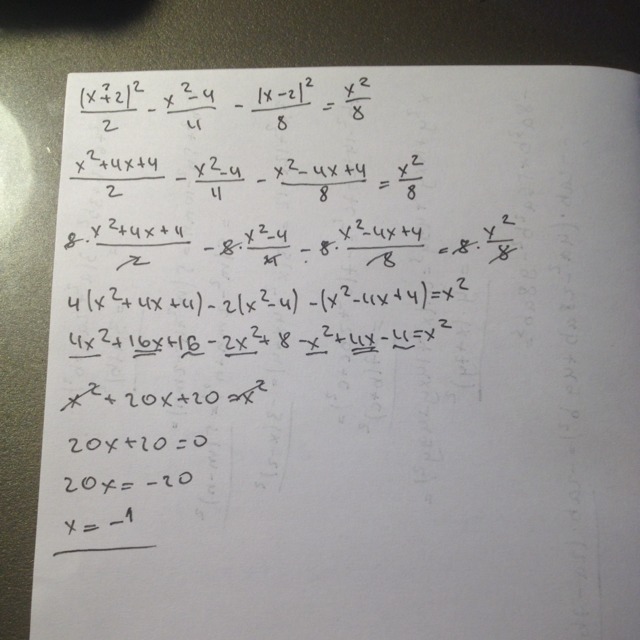 (x+2)²/2 - x²-4/4 - (x-2)²/8 = x²/8
x²+4x+4/2 - x²-4/4 - x²-4x+4/8 = x²/8
8· x²+4x+4/2 - 8· x²-4/4 - 8· x²-4x+4/8 = 8· x²/8
4(x²+4x+4)-2(x²-4)-(x²-4x+4)=x²
4x²+16x+16-2x²+8-x²+4x-4=x²
x²+20x+20=x²
20x+20=0
20x=-20
x=-1